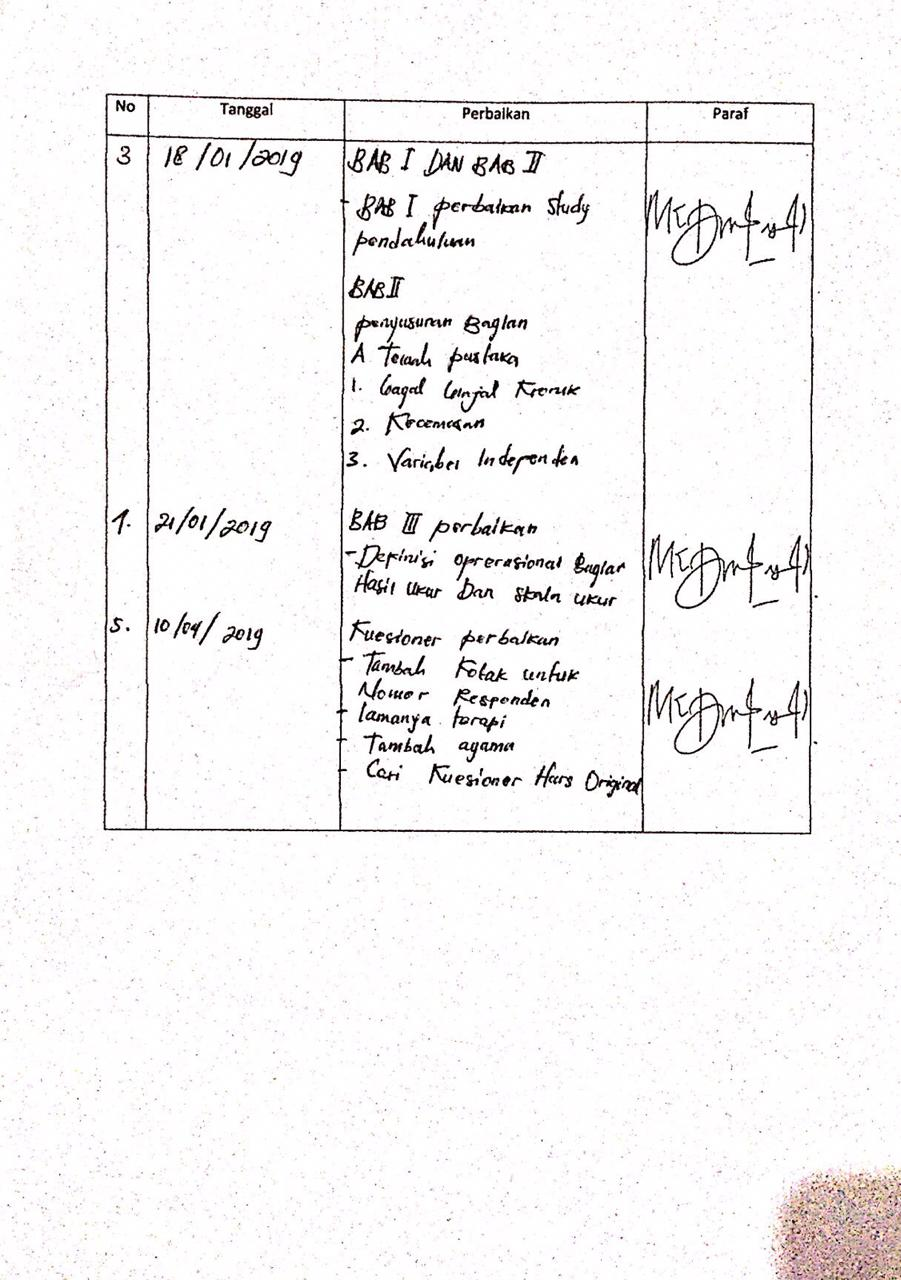 No Tanggal Perbaikan Paraf
3 18/01/2019 BAB I DAN BAB II
- BAB I perbaikan study
pendahuluan
BAB II
penyusunan Bagian
A Telaah pustaka
1. Gagal Ginjal Kronik
2. Kecemasan
3. Variabel Independen
4. 21/01/2019 BAB III perbaikan
- Definisi oprerasional Bagian
Hasil ukur Dan skala ukur
5. 10/04/2019 Kuesioner perbaikan
- Tambah Kotak untuk
Nomor Responden
- lamanya terapi
- Tambah agama
- Cari Kuesioner Hars Original